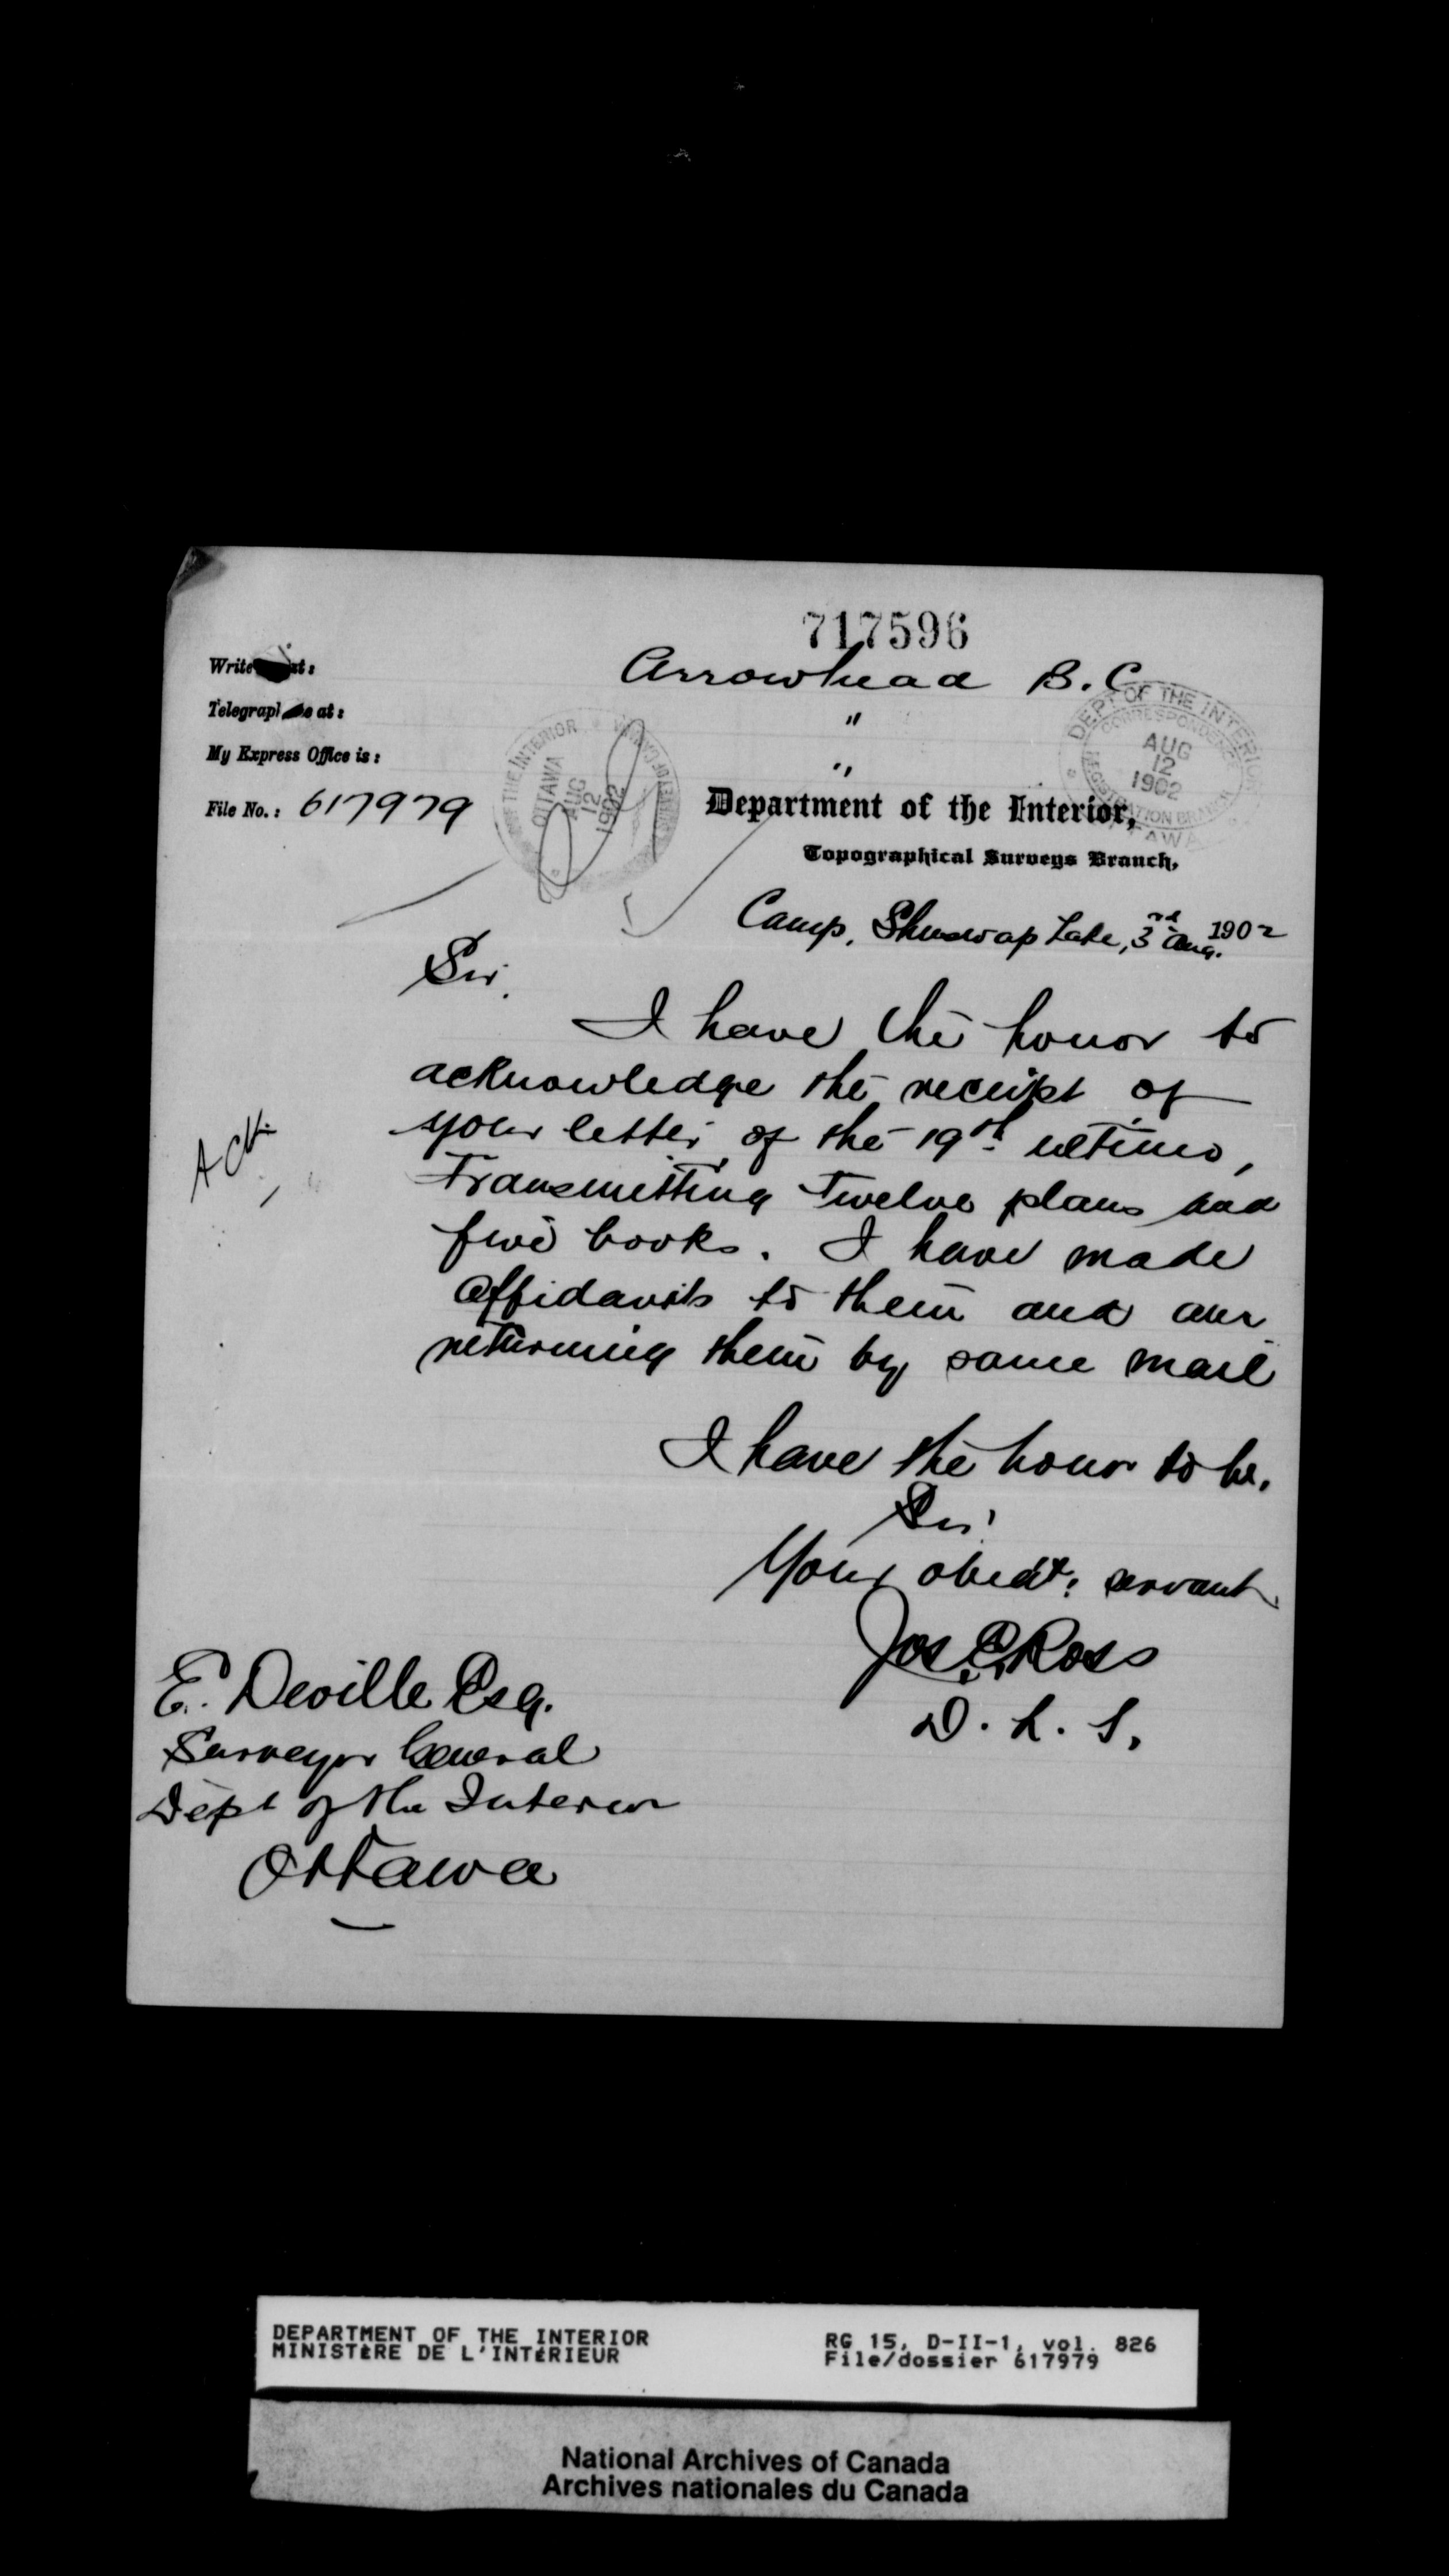 717596
Write at: Arrowhead B.C.
Telegraph at: "
My Express Office is: "
File No.: 617979
DEPT OF THE INTERIOR
CORRESPONDENCE
AUG
12
1902
REGISTRATION BRANCH
OTTAWA
OF THE INTERIOR
OTTAWA
AUG
12
1902
Department of the Interior,
Topographical Surveys Branch,
Camp, Shuswap Lake, 3rd Aug. 1902
Sir,
I have the honor to
acknowledge the receipt of
your letter of the 19th ultimo,
transmitting twelve plans and
five books. I have made
affidavits to them and am
returning them by same mail
Ack
I have the honor to be,
Sir,
Your obedt: servant
Jos. E. Ross
D. L. S.
E. Deville Esq.
Surveyor General
Dept of the Interior
Ottawa
DEPARTMENT OF THE INTERIOR
MINISTÈRE DE L'INTÉRIEUR
RG 15, D-II-1, vol. 826
File/dossier 617979
National Archives of Canada
Archives nationales du Canada